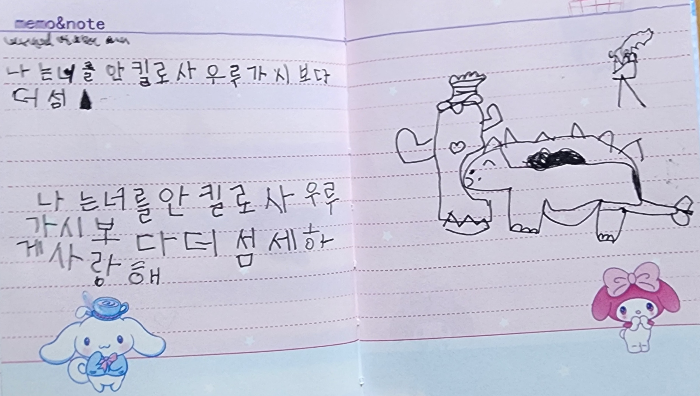 memo&note
나 는너를 안 킬로 사 우루 가 시 보다
더 섬
나 는너를 안 킬 로 사 우루
가시 보 다 더 섬 세 하
게 사 랑 해